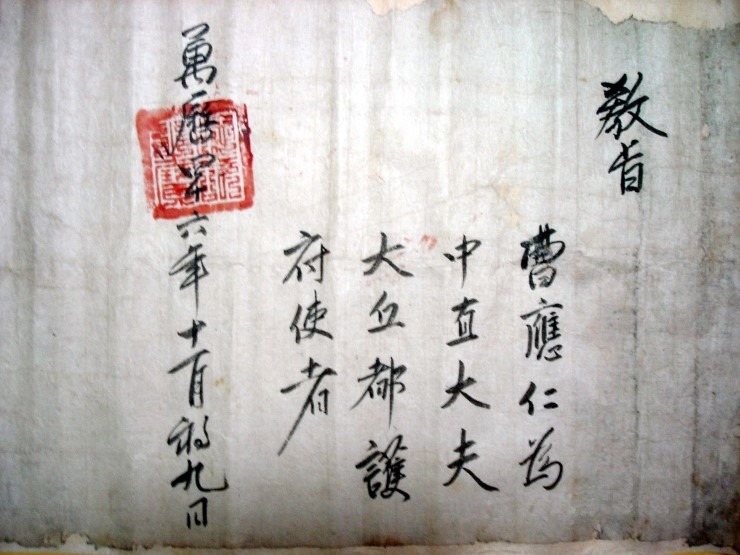 敎旨
曺應仁爲
中直大夫
大丘都護
府使者
萬曆四十六年十一月初九日